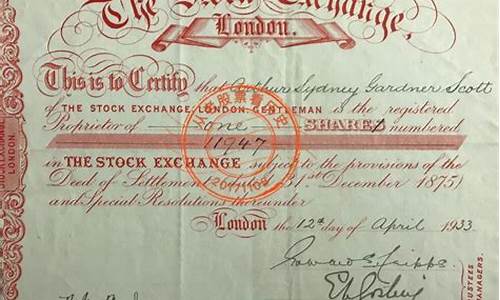 The Stock Exchange,
London.
This is to Certify that Arthur Sydney Gardner Scott
OF THE STOCK EXCHANGE LONDON GENTLEMAN is the registered
Proprietor of one SHARE numbered
11947
in THE STOCK EXCHANGE subject to the provisions of the
Deed of Settlement (dated 31st December 1875)
and Special Resolutions thereunder
London the 12th day of April 1933.
股票看历史
LONDON
TRUSTEES
MANAGERS.